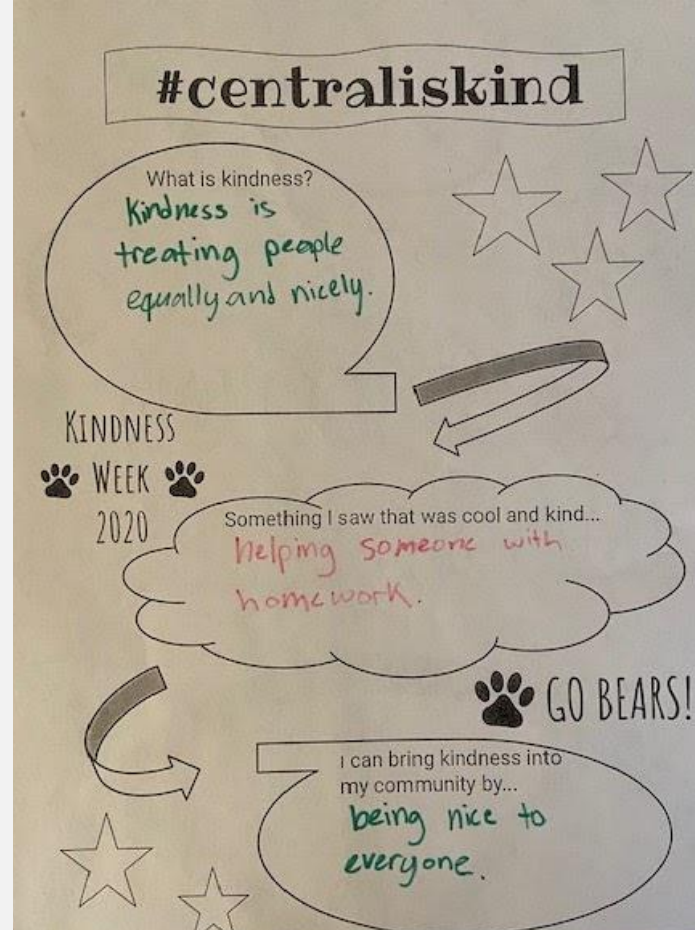 #centraliskind
What is kindness?
Kindness is
treating people
equally and nicely.
KINDNESS
WEEK
2020
Something I saw that was cool and kind...
helping someone with
homework.
GO BEARS!
I can bring kindness into
my community by...
being nice to
everyone.